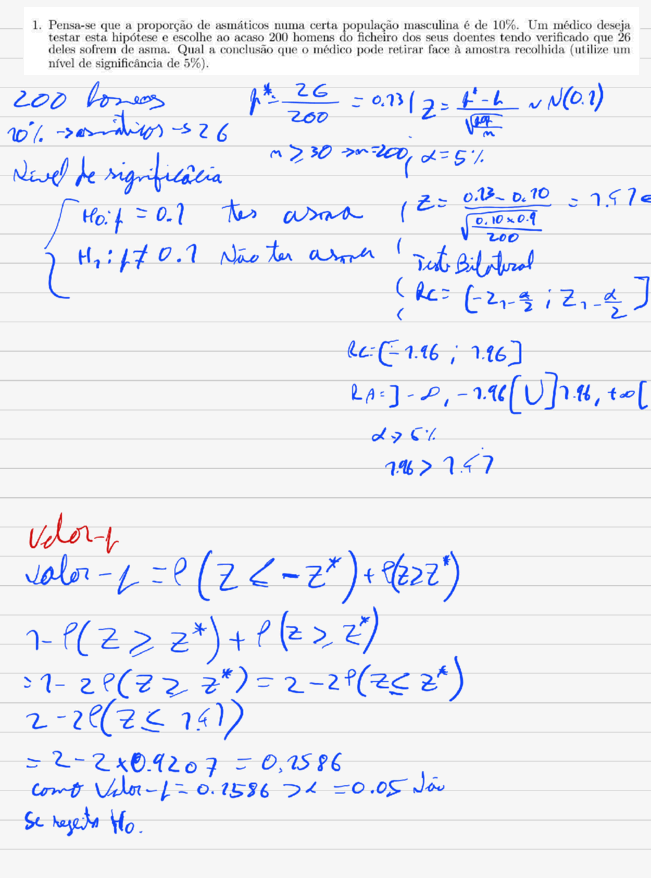 1. Pensa-se que a proporção de asmáticos numa certa população masculina é de 10%. Um médico deseja
testar esta hipótese e escolhe ao acaso 200 homens do ficheiro dos seus doentes tendo verificado que 26
deles sofrem de asma. Qual a conclusão que o médico pode retirar face à amostra recolhida (utilize um
nível de significância de 5%).
200 homens
10% → asmáticos → 26
Nível de significância
H0: p = 0.1 ter asma
H1: p ≠ 0.1 Não ter asma
p* = 26/200 = 0.13
n ≥ 30 → n=200, α = 5%
Z = (p* - p)/√(pq/n) ~ N(0.1)
Z = (0.13 - 0.10)/√(0.10×0.9/200) = 1.41
Teste Bilateral
RC = [-Z1-α/2 ; Z1-α/2]
RC = [-1.96 ; 1.96]
RA = ]-∞, -1.96[ U ]1.96, +∞[
α → 5%
1.96 > 1.41
Valor-p
Valor-p = P(Z ≤ -Z*) + P(Z ≥ Z*)
1 - P(Z ≥ Z*) + P(Z ≥ Z*)
= 1 - 2P(Z ≥ Z*) = 2 - 2P(Z ≤ Z*)
2 - 2P(Z ≤ 1.41)
= 2 - 2×0.9207 = 0,1586
como Valor-p = 0.1586 > α = 0.05 Não
se rejeita H0.